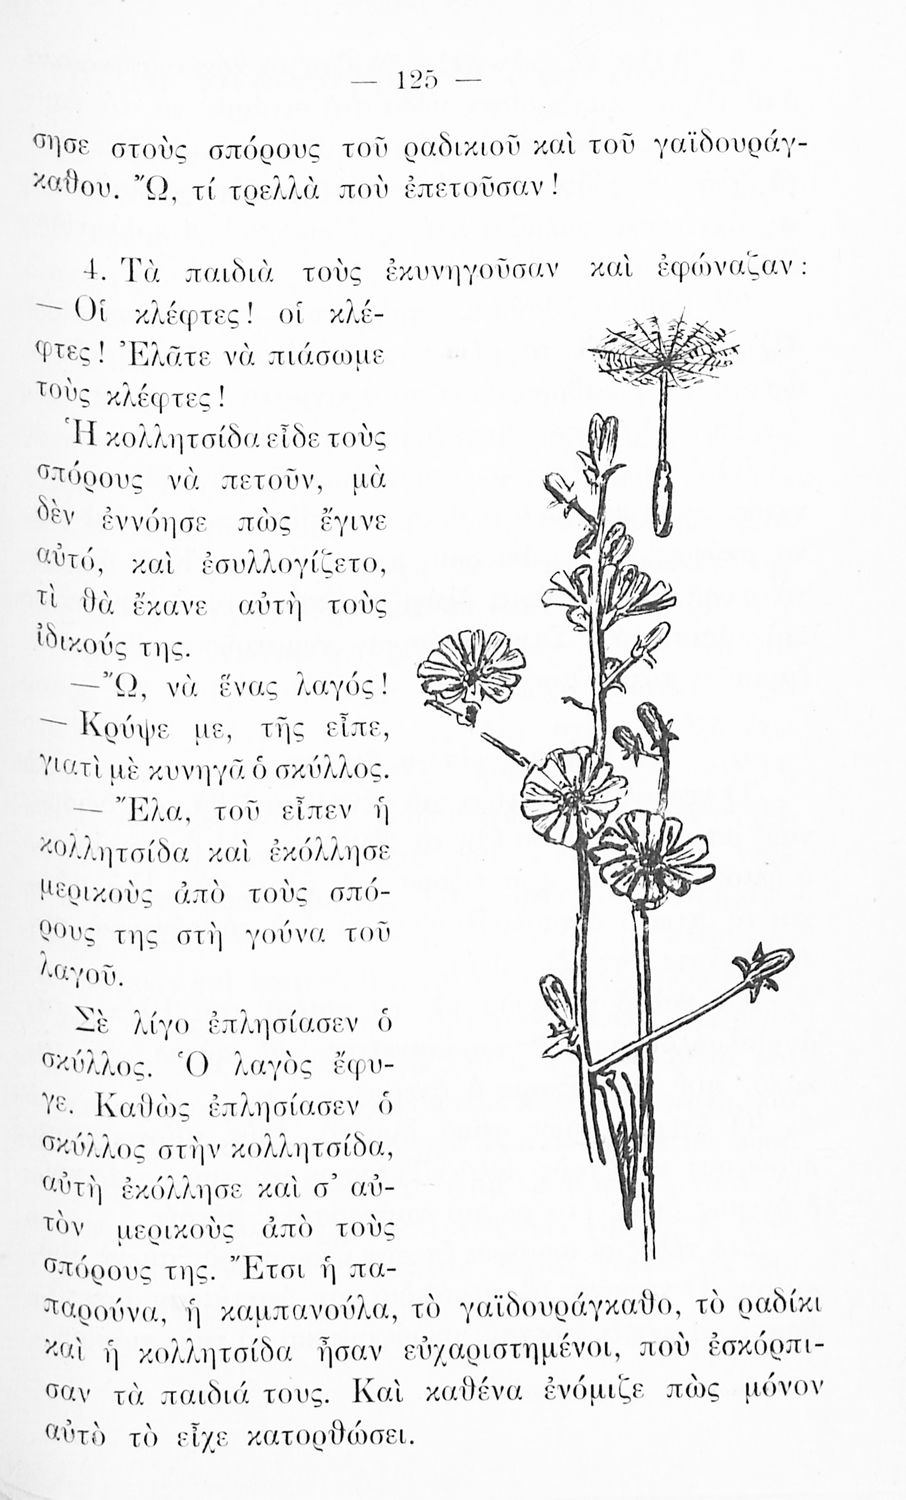 — 125 —
σησε στοὺς σπόρους τοῦ ραδικιοῦ καὶ τοῦ γαϊδουράγ-
καθου. Ὤ, τί τρελλὰ ποὺ ἐπετοῦσαν!
4. Τὰ παιδιὰ τοὺς ἐκυνηγοῦσαν καὶ ἐφώναζαν:
— Οἱ κλέφτες! οἱ κλέ-
φτες! Ἐλᾶτε νὰ πιάσωμε
τοὺς κλέφτες!
Ἡ κολλητσίδα εἶδε τοὺς
σπόρους νὰ πετοῦν, μὰ
δὲν ἐννόησε πὼς ἔγινε
αὐτό, καὶ ἐσυλλογίζετο,
τὶ θὰ ἔκανε αὐτὴ τοὺς
ἰδικούς της.
—Ὤ, νὰ ἕνας λαγός!
— Κρύψε με, τῆς εἶπε,
γιατὶ μὲ κυνηγᾶ ὁ σκύλλος.
— Ἔλα, τοῦ εἶπεν ἡ
κολλητσίδα καὶ ἐκόλλησε
μερικοὺς ἀπὸ τοὺς σπό-
ρους της στὴ γούνα τοῦ
λαγοῦ.
Σὲ λίγο ἐπλησίασεν ὁ
σκύλλος. Ὁ λαγὸς ἔφυ-
γε. Καθὼς ἐπλησίασεν ὁ
σκύλλος στὴν κολλητσίδα,
αὐτὴ ἐκόλλησε καὶ σ᾿ αὐ-
τὸν μερικοὺς ἀπὸ τοὺς
σπόρους της. Ἔτσι ἡ πα-
παρούνα, ἡ καμπανούλα, τὸ γαϊδουράγκαθο, τὸ ραδίκι
καὶ ἡ κολλητσίδα ἦσαν εὐχαριστημένοι, ποὺ ἐσκόρπι-
σαν τὰ παιδιά τους. Καὶ καθένα ἐνόμιζε πὼς μόνον
αὐτὸ τὸ εἶχε κατορθώσει.